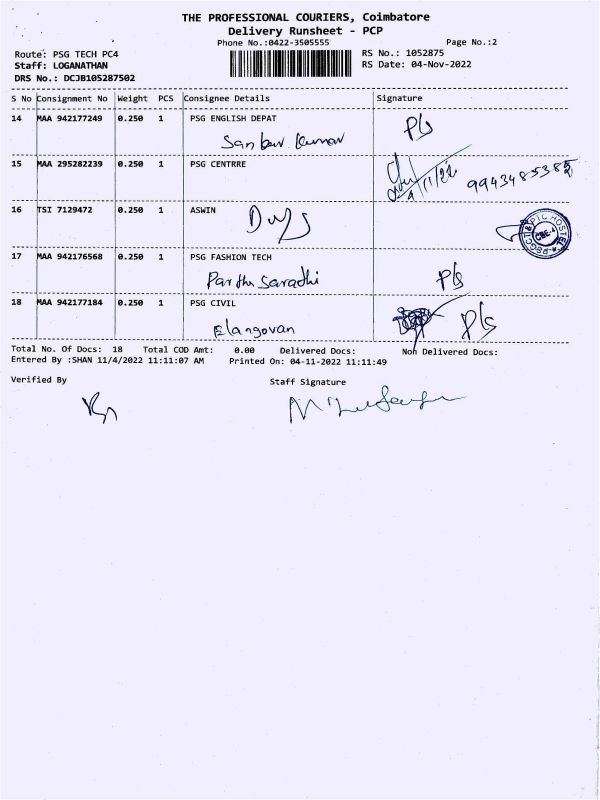 THE PROFESSIONAL COURIERS, Coimbatore
Delivery Runsheet - PCP
Phone No.:0422-3505555
Page No.:2
Route: PSG TECH PC4
RS No.: 1052875
Staff: LOGANATHAN
RS Date: 04-Nov-2022
DRS No.: DCJB105287502
S No Consignment No Weight PCS Consignee Details Signature
14 MAA 942177249 0.250 1 PSG ENGLISH DEPAT
Kumar
15 MAA 295282239 0.250 1 PSG CENTRRE
4/11/22 9943485385
16 TSI 7129472 0.250 1 ASWIN
17 MAA 942176568 0.250 1 PSG FASHION TECH
Partha Saradhi
18 MAA 942177184 0.250 1 PSG CIVIL
Elangovan
Total No. Of Docs: 18 Total COD Amt: 0.00 Delivered Docs: Non Delivered Docs:
Entered By :SHAN 11/4/2022 11:11:07 AM Printed On: 04-11-2022 11:11:49
Verified By
Staff Signature